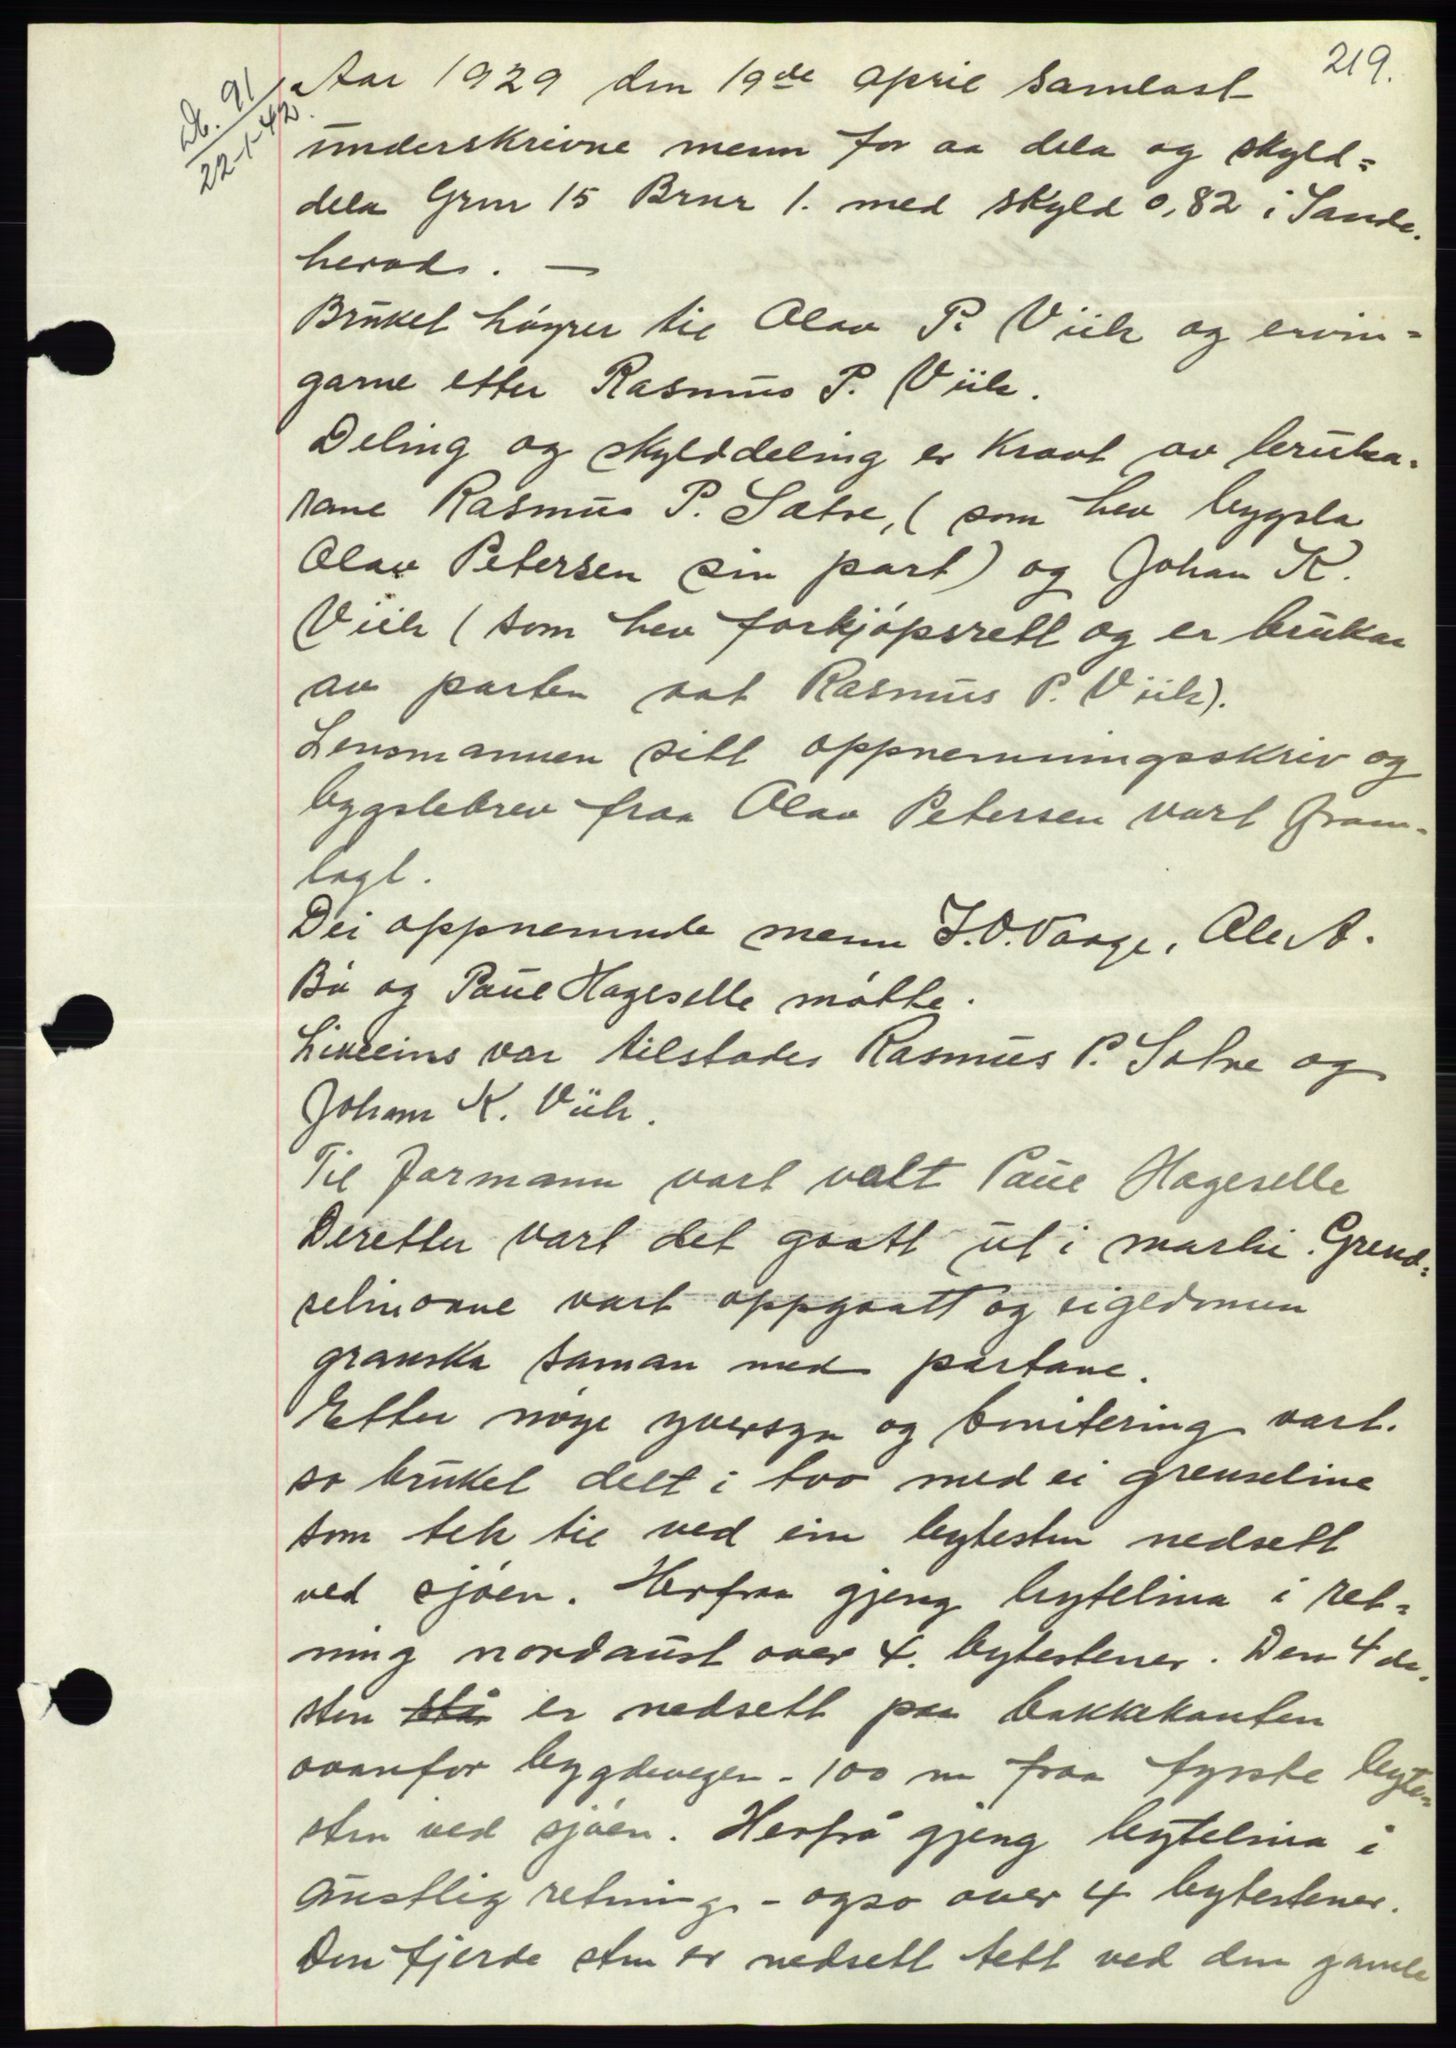 219.
Db. 91
22-1-42.
Aar 1929 den 19de april samlast
underskrivne menn for aa dela og skyld=
dela Grnr 15 Brnr 1. med skyld 0,82 i Sande.
herad. —
Bruket høyrer til Olav P. Viik og ervin=
garne etter Rasmus P. Viik.
Deling og skylddeling er kravt av bruka-
rane Rasmus P. Sætre, (som hev bygsla
Olav Petersen sin part) og Johan K.
Viik (som hev forkjøpsrett og er brukar
av parten aat Rasmus P. Viik).
Lensmannen sitt oppnemningsskriv og
bygslebrev fraa Olav Petersen vart fram-
lagt.
Dei oppnemnde menn J.O. Vaage, Ole A.
Bø og Paul Hageselle møtte.
Likeeins var tilstades Rasmus P. Sætre og
Johan K. Viik.
Til formann vart valt Paul Hageselle
Deretter vart det gaatt ut i marki. Grend=
selinorne vart oppgaatt og eigedomen
granska saman med partane.
Etter nøye yversyn og bonitering vart.
so bruket delt i tvo med ei grenseline
som tek til ved ein bytestein nedsett
ved sjøen. Herfraa gjeng bytelina i ret=
ning nordaust over 4. bytestener. Den 4de.
sten står er nedsett paa bakkekanten
ovanfor bygdevegen - 100 m fraa fyrste byte=
sten ved sjøen. Herfrå gjeng bytelina i
austlig retning - ogso over 4 bytestener.
Den fjerde sten er nedsett tett ved den gamle